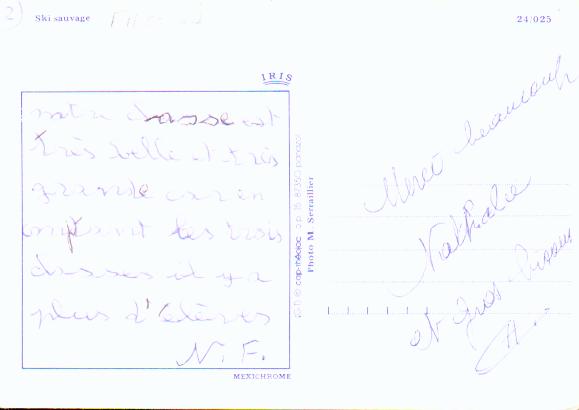 2)
Ski sauvage
24/025
IRIS
notre classe est
très belle et très
grande car en
comptant les trois
classes il y a
plus d'élèves
N. F.
MEXICHROME
Photo M. Serraillier
cap-théojac b.p. 15 87350 panazol
Merci beaucoup
Nathalie
et gros bisous